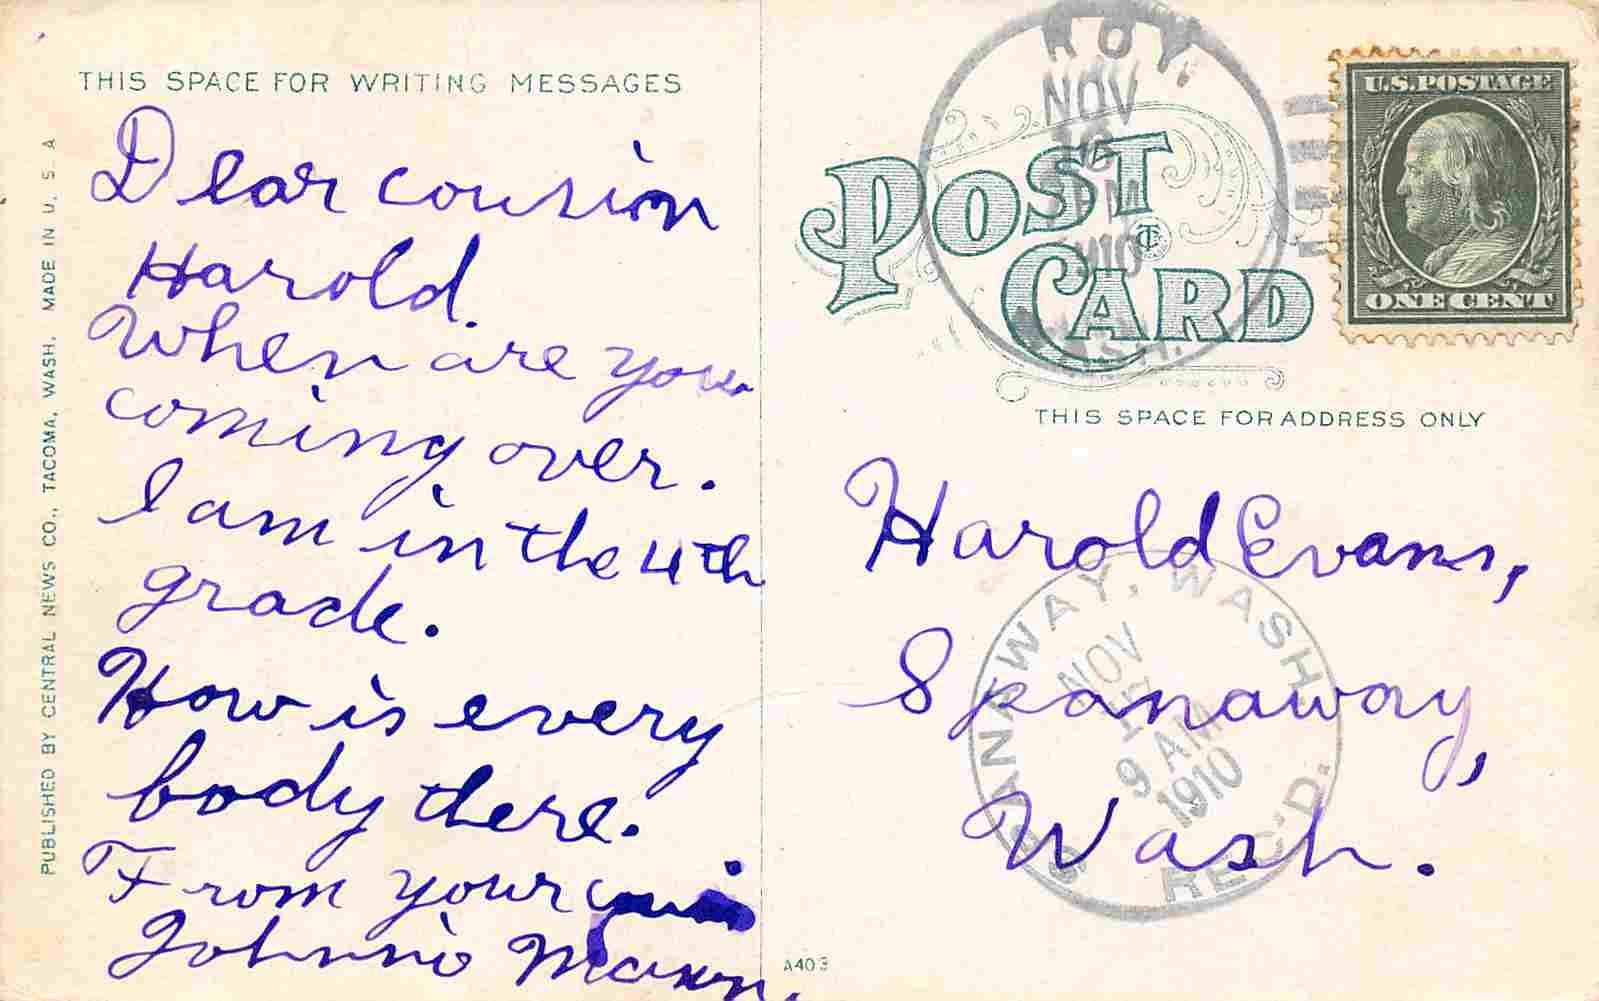 THIS SPACE FOR WRITING MESSAGES
Dear cousin
Harold.
When are you
coming over.
I am in the 4th
grade.
How is every
body there.
From your
Johnnie Mann.
PUBLISHED BY CENTRAL NEWS CO., TACOMA, WASH. MADE IN U. S. A
POST
CARD
ROY.
NOV
1910
WASH.
U.S. POSTAGE
ONE CENT
THIS SPACE FOR ADDRESS ONLY
Harold Evans,
Spanaway,
Wash.
SPANAWAY, WASH.
NOV
17
9 AM
1910
REC'D.
A403